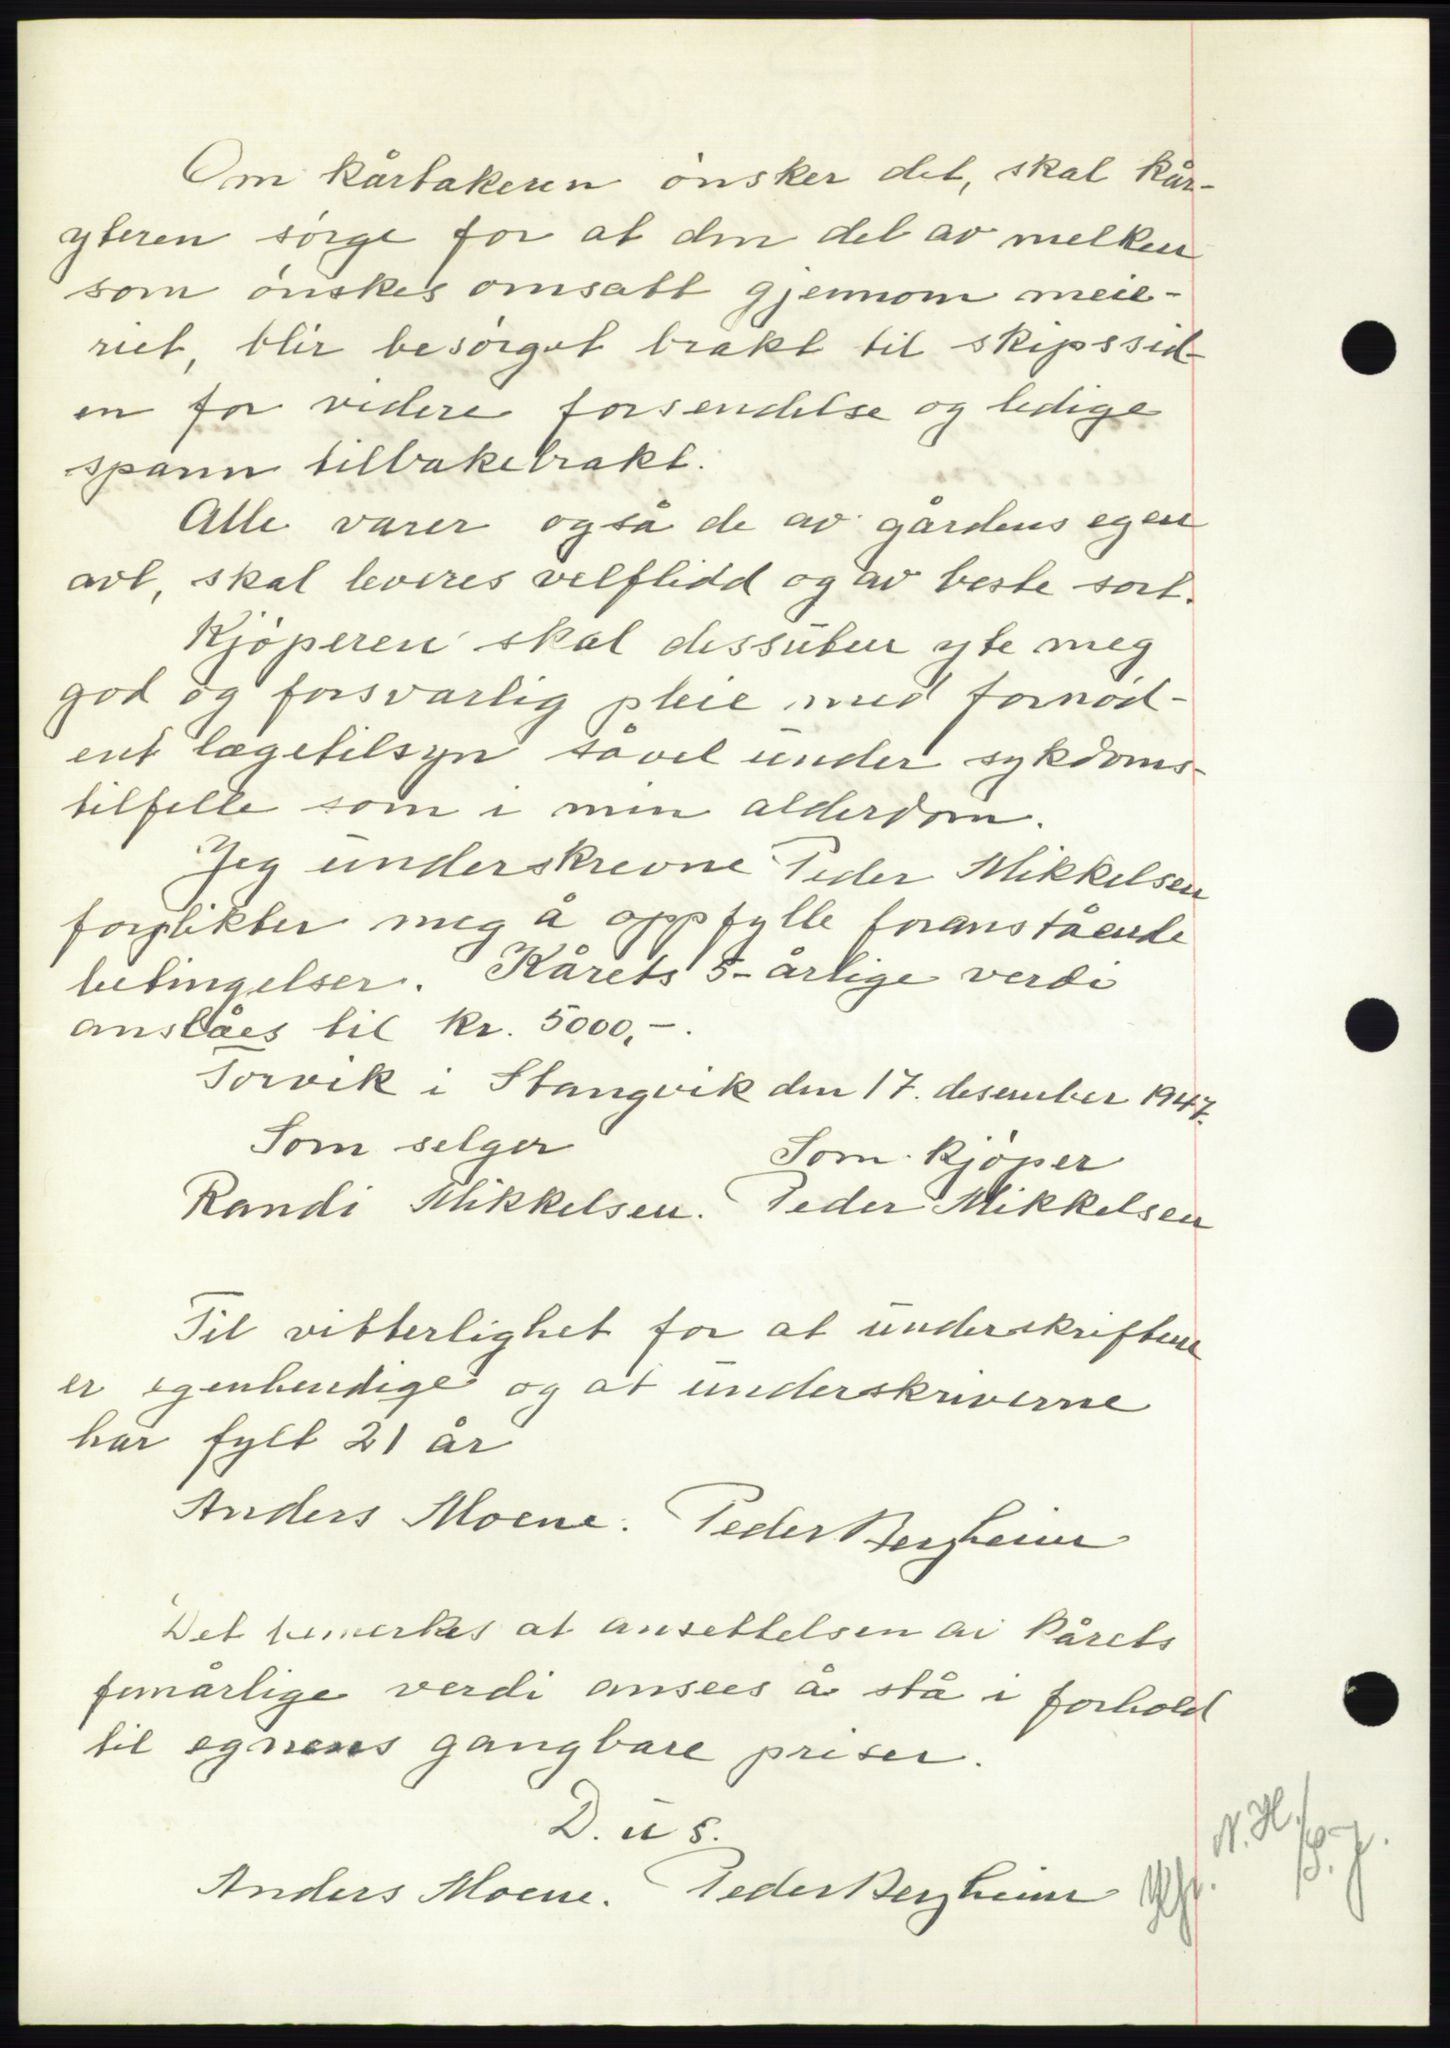 Om kårtakeren ønsker det, skal kår-
yteren sørge for at den del av melken
som ønskes omsatt gjennom meie-
riet, blir besørget brakt til skipssid-
en for videre forsendelse og ledige
spann tilbakebrakt.
Alle varer også de av gårdens egen
avl, skal leveres velflidd og av beste sort.
Kjøperen skal dessuten yte meg
god og forsvarlig pleie med fornød-
ent lægetilsyn såvel under sykdoms-
tilfelle som i min alderdom.
Jeg underskrevne Peder Mikkelsen
forplikter meg å oppfylle foranstående
betingelser. Kårets 5-årlige verdi
anslåes til kr. 5000,-.
Torvik i Stangvik den 17. desember 1947.
Som selger Som kjøper
Randi Mikkelsen. Peder Mikkelsen
Til vitterlighet for at underskriftene
er egenhendige og at underskriverne
har fylt 21 år
Anders Moene. Peder Bergheim
Det bemerkes at ansettelsen av kårets
femårlige verdi ansees å stå i forhold
til egnens gangbare priser.
D. u s.
Anders Moene. Peder Bergheim
N.H./S.J.